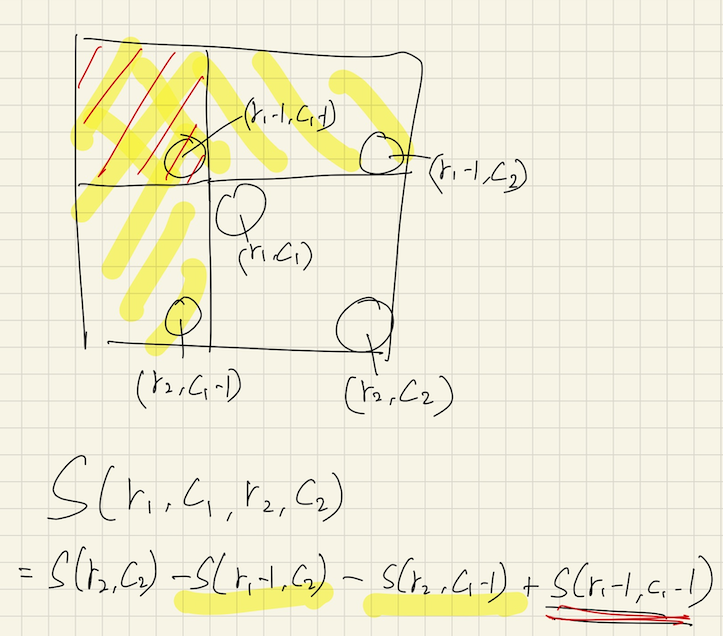 (r₁-1, c₁-1)
(r₁-1, c₂)
(r₁, c₁)
(r₂, c₁-1)
(r₂, c₂)
S(r₁, c₁, r₂, c₂)
= S(r₂, c₂) - S(r₁-1, c₂) - S(r₂, c₁-1) + S(r₁-1, c₁-1)